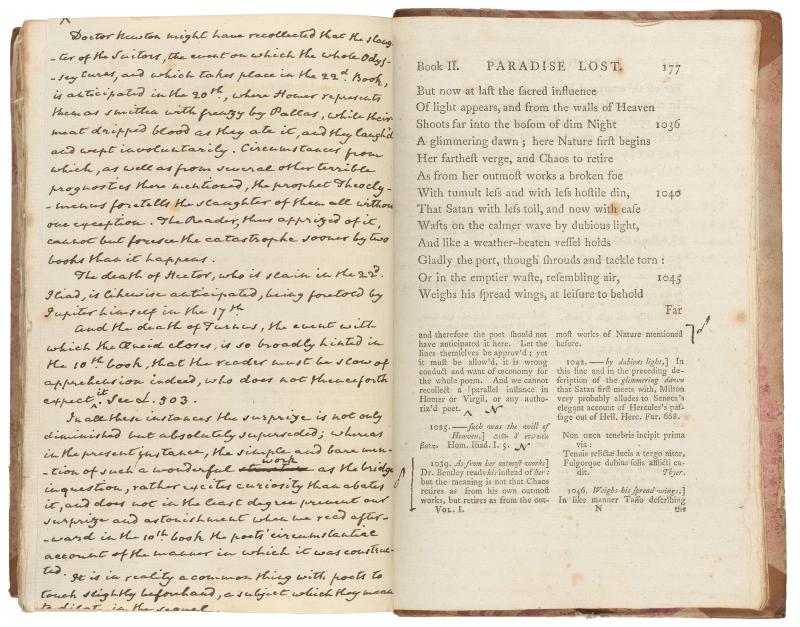 Doctor Newton might have recollected that the slaug-
-ter of the Suitors, the event on which the whole Odys-
-sey turns, and which takes place in the 22d. Book,
is anticipated in the 20th, where Homer represents
them as smitten with frenzy by Pallas, while their
meat dripped blood as they ate it, and they laugh'd
and wept involuntarily. Circumstances from
which, as well as from several other terrible
prognostics there mentioned, the prophet Theocly-
-menus foretells the slaughter of them all without
one exception. The Reader, thus apprized of it,
cannot but foresee the catastrophe sooner by two
books than it happens.
The death of Hector, who is slain in the 22d.
Iliad, is likewise anticipated, being foretold by
Jupiter himself in the 17th
And the death of Turnus, the event with
which the Æneid closes, is so broadly hinted in
the 10th book, that the reader must be slow of
apprehension indeed, who does not thenceforth
expect it. See L. 503.
In all these instances the surprize is not only
diminished but absolutely superseded; whereas
in the present instance, the simple and bare men-
-tion of such a wonderful structure work as the bridge
in question, rather excites curiosity than abates
it, and does not in the least degree prevent our
surprize and astonishment when we read after-
-ward in the 10th book the poets' circumstantial
account of the manner in which it was construc-
ted.
It is in reality a common thing with poets to
touch slightly beforehand, a subject which they mean
to dilate in the sequel.
Book II. PARADISE LOST. 177
But now at laſt the ſacred influence
Of light appears, and from the walls of Heaven
Shoots far into the boſom of dim Night 1036
A glimmering dawn; here Nature firſt begins
Her fartheſt verge, and Chaos to retire
As from her outmoſt works a broken foe
With tumult leſs and with leſs hoſtile din, 1040
That Satan with leſs toil, and now with eaſe
Wafts on the calmer wave by dubious light,
And like a weather-beaten veſſel holds
Gladly the port, though ſhrouds and tackle torn:
Or in the emptier waſte, reſembling air, 1045
Weighs his ſpread wings, at leiſure to behold
Far
and therefore the poet ſhould not
have anticipated it here. Let the
lines themſelves be approv'd; yet
it muſt be allow'd, it is wrong
conduct and want of œconomy for
the whole poem. And we cannot
recollect a parallel inſtance in
Homer or Virgil, or any autho-
riz'd poet. N
1025. —ſuch was the will of
Heaven,]
Hom. Iliad. I. 5. N
1039. As from her outmoſt works]
Dr. Bentley reads his inſtead of her:
but the meaning is not that Chaos
retires as from his own outmoſt
works, but retires as from the out-
VOL. I.
moſt works of Nature mentioned
before.
1042. —by dubious light,] In
this line and in the preceding de-
ſcription of the glimmering dawn
that Satan firſt meets with, Milton
very probably alludes to Seneca's
elegant account of Hercules's paſ-
ſage out of Hell. Herc. Fur. 668.
Non cæca tenebris incipit prima
via:
Tenuis relictæ lucis a tergo nitor,
Fulgorque dubius ſolis afflicti ca-
dit. Thyer.
1046. Weighs his ſpread wings,]
In like manner Taſſo deſcribing
N the